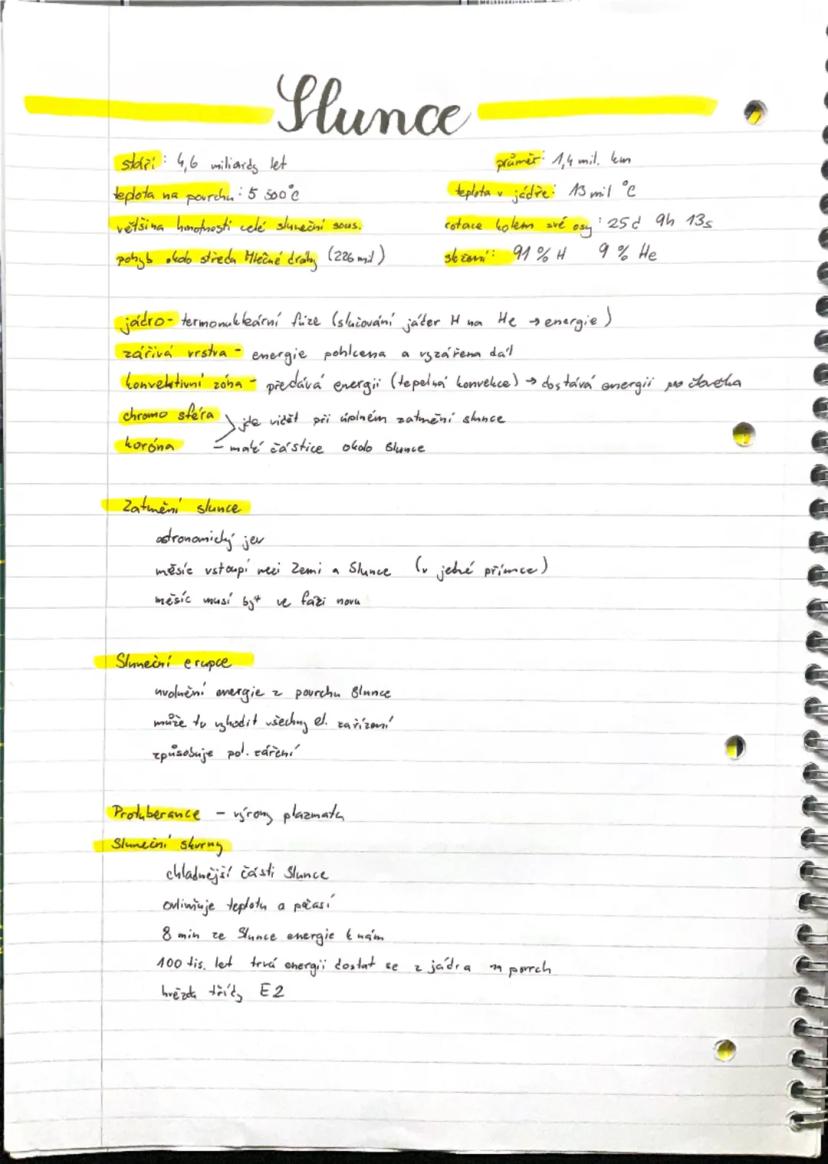 Slunce
stáří: 4,6 miliardy let
průměr: 1,4 mil. km
teplota na povrchu: 5 500°C
teplota v jádře: 13 mil °C
většina hmotnosti celé sluneční sous.
rotace kolem své osy: 25d 9h 13s
pohyb okolo středu Mléčné dráhy (226 mil)
složení: 91 % H 9 % He
jádro - termonukleární fúze (slučování jáder H na He → energie)
zářivá vrstva - energie pohlcena a vyzářena dál
konvektivní zóna - předává energii (tepelná konvekce) → dostává energii pro člověka
chromo sféra
jde vidět při úplném zatmění slunce
koróna - malé částice okolo Slunce
Zatmění slunce
astronomický jev
měsíc vstoupí mezi Zemi a Slunce (v jedné přímce)
měsíc musí být ve fázi novu
Sluneční erupce
uvolnění energie z povrchu Slunce
může to vyhodit všechny el. zařízení
způsobuje pol. záření
Protuberance - výrony plazmatu
Sluneční skvrny
chladnější části Slunce
ovlivňuje teplotu a počasí
8 min ze Slunce energie k nám
100 tis. let trvá energii dostat se z jádra n povrch
hvězda třídy E2